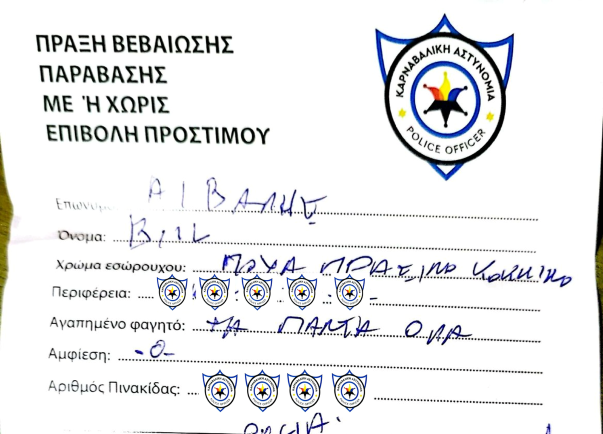 ΠΡΑΞΗ ΒΕΒΑΙΩΣΗΣ
ΠΑΡΑΒΑΣΗΣ
ΜΕ Ή ΧΩΡΙΣ
ΕΠΙΒΟΛΗ ΠΡΟΣΤΙΜΟΥ
ΚΑΡΝΑΒΑΛΙΚΗ ΑΣΤΥΝΟΜΙΑ
POLICE OFFICER
Επώνυμο: ΑΙΒΑΛΗΣ
Όνομα:
Χρώμα εσώρουχου: ΠΟΥΑ ΠΡΑΣΙΝΟ ΚΟΚΚΙΝΟ
Περιφέρεια:
Αγαπημένο φαγητό: ΤΑ ΠΑΝΤΑ ΟΛΑ
Αμφίεση: -0-
Αριθμός Πινακίδας: